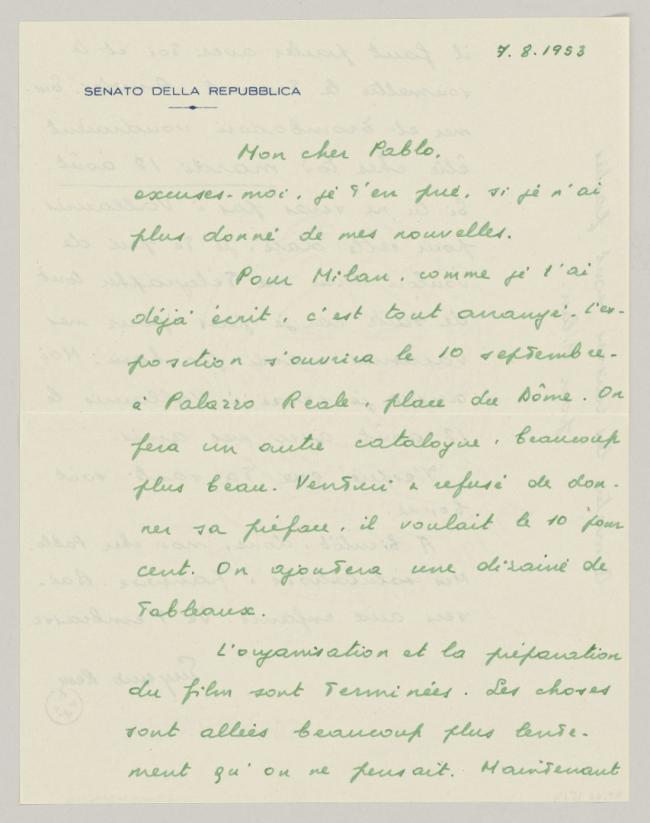 7.8.1953
SENATO DELLA REPUBBLICA
Mon cher Pablo,
excuses-moi, je t'en prie, si je n'ai
plus donné de mes nouvelles.
Pour Milan, comme je t'ai
déjà écrit, c'est tout arrangé. L'ex-
position s'ouvrira le 10 septembre.
à Palazzo Reale, place du Dôme. On
fera un autre catalogue, beaucoup
plus beau. Venturi a refusé de don-
ner sa préface, il voulait le 10 pour
cent. On ajoutera une dizaine de
tableaux.
L'organisation et la préparation
du film sont terminées. Les choses
sont allées beaucoup plus lente-
ment qu'on ne pensait. Maintenant